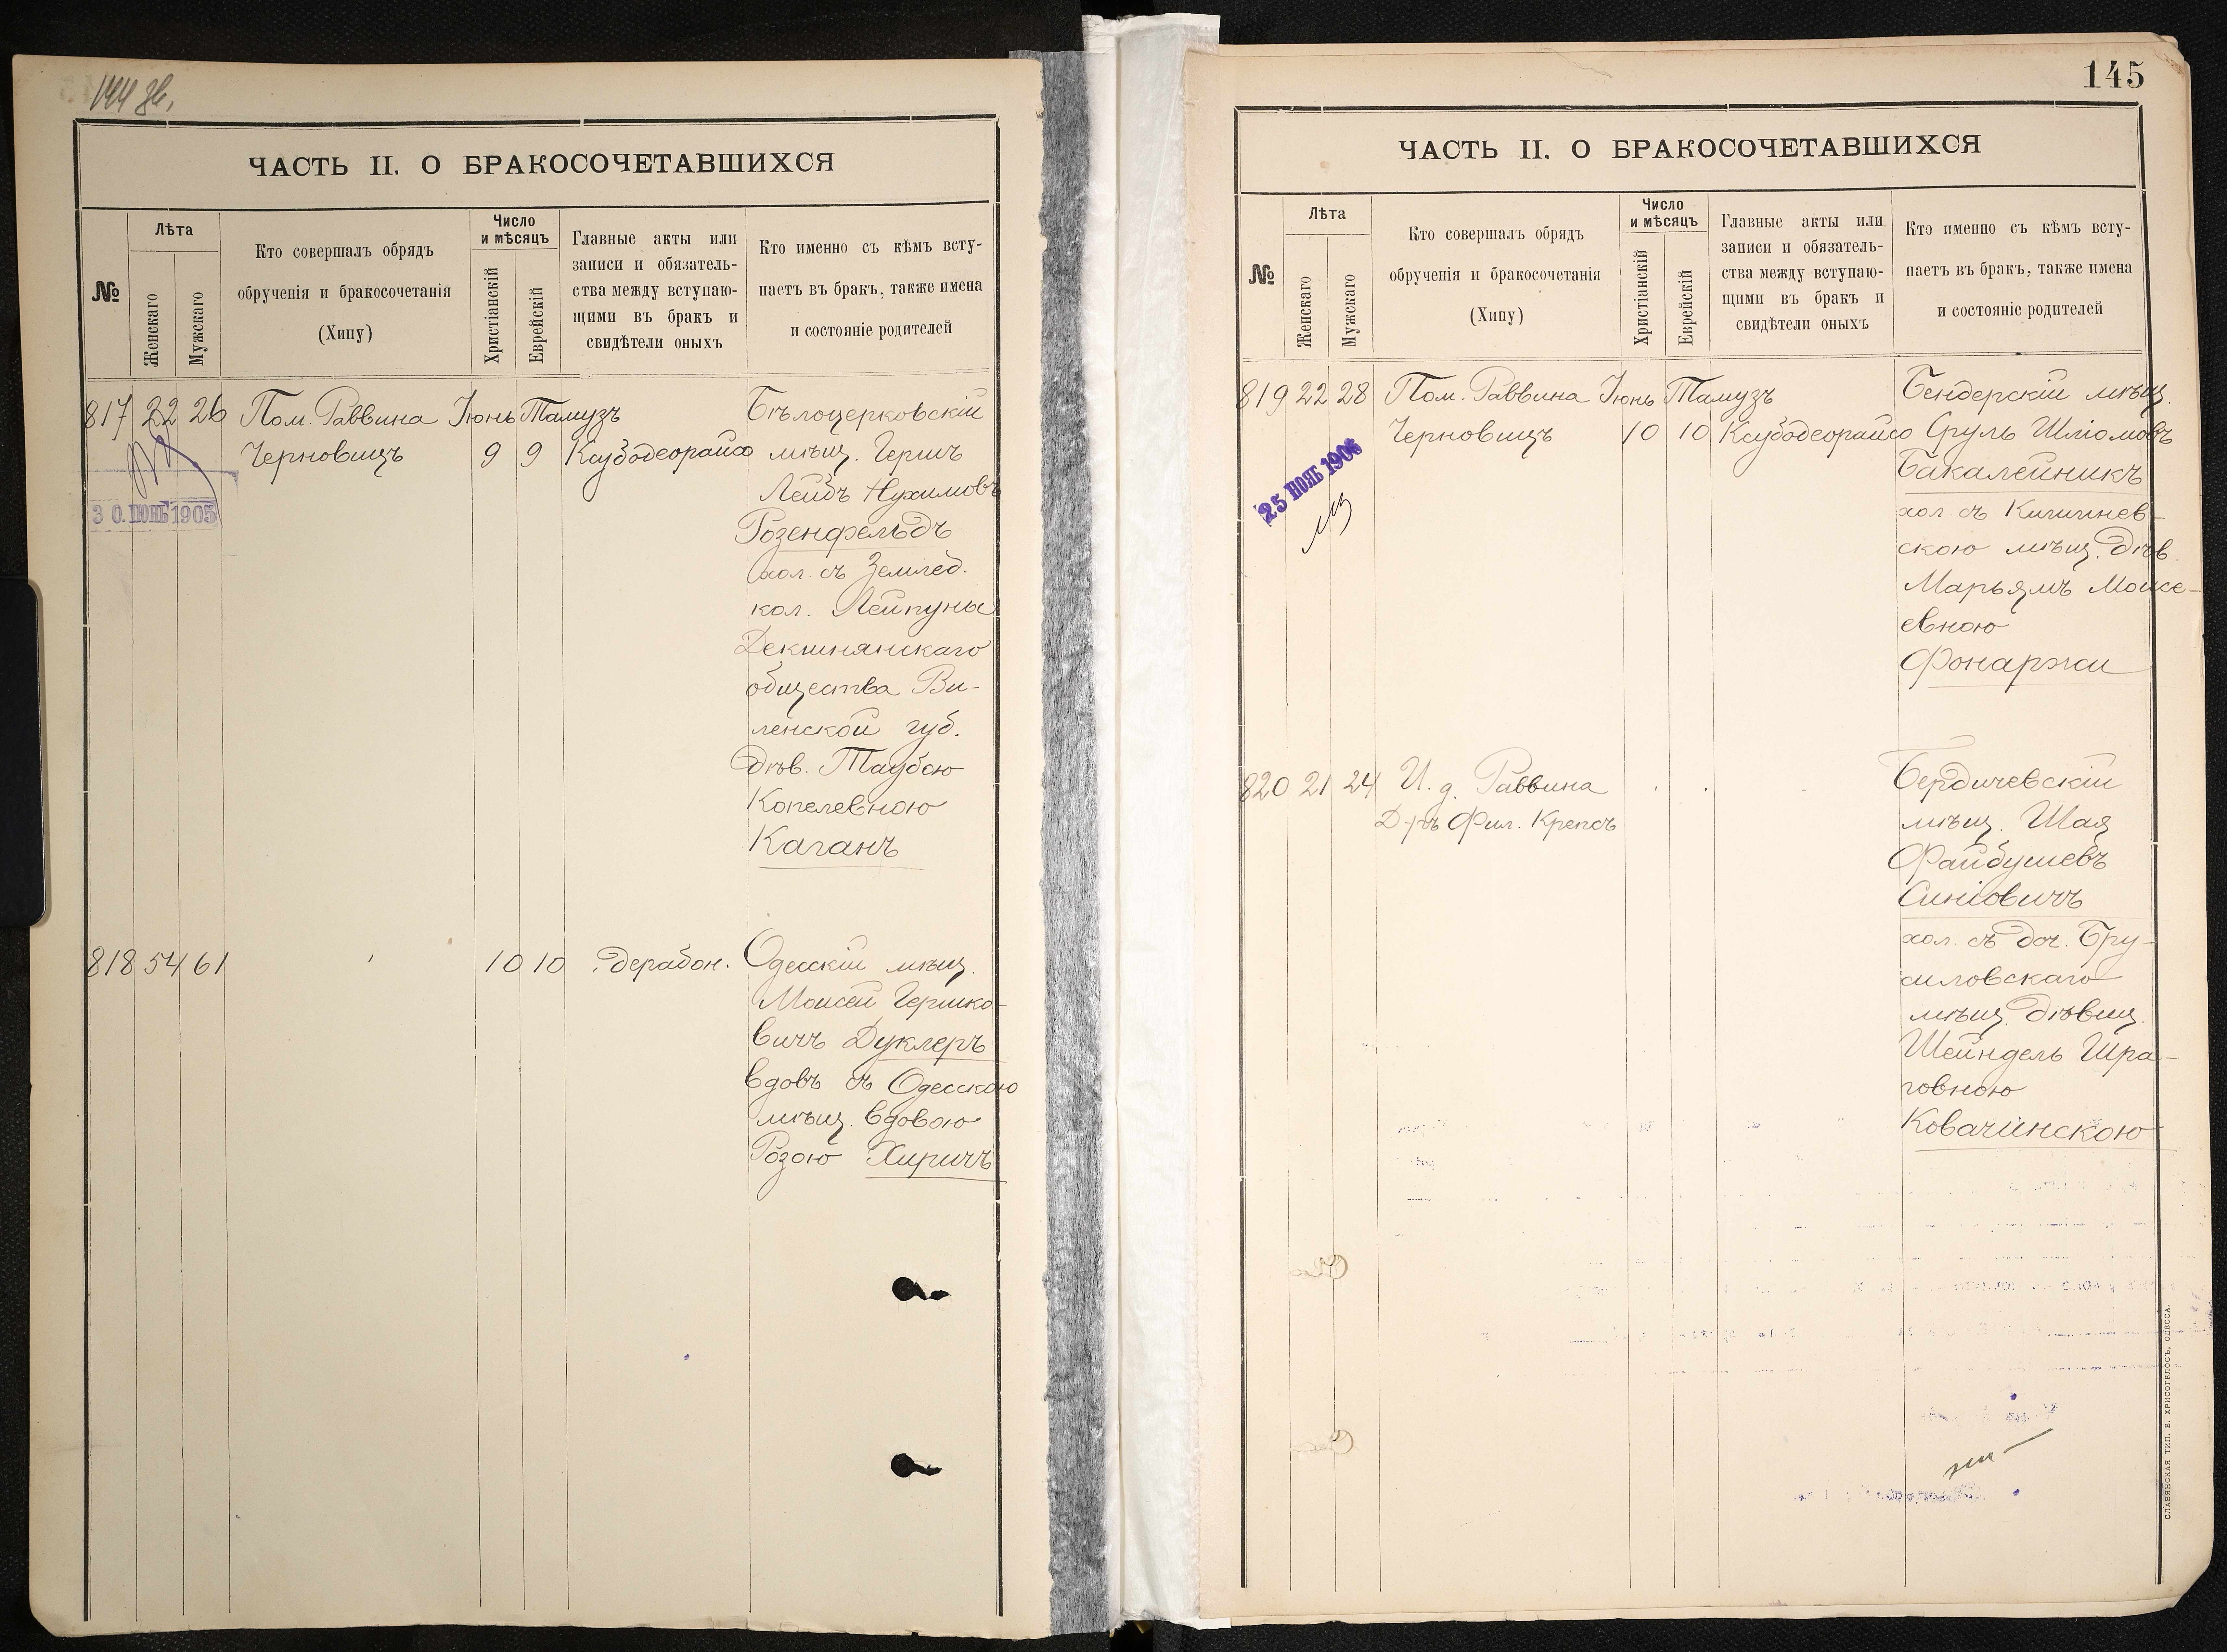 ЧАСТЬ II. О БРАКОСОЧЕТАВШИХСЯ
№
Лѣта
Женскаго
Мужскаго
Кто совершалъ обрядъ
обрученія и бракосочетанія
(Хипу)
Число
и мѣсяцъ
Христіанскій
Еврейскій
Главные акты или
записи и обязатель-
ства между вступаю-
щими въ бракъ и
свидѣтели оныхъ
Кто именно съ кѣмъ всту-
паетъ въ бракъ, также имена
и состояніе родителей
817 22 26 Пом. Раввина Іюнь Тамузъ
Черновицъ 9 9 Ксубодеорайсо
30. ІЮНЬ 1905
Бѣлоцерковскій
мѣщ. Гершъ
Лейбъ Нухимовъ
Розенфельдъ
хол. съ Землед.
кол. Лейпуны
Декшнянскаго
общества Ви-
ленской губ.
дѣв. Таубою
Копелевною
Каганъ
818 54 61 10 10 дерабон.
Одесскій мѣщ.
Моисей Гершко-
вичъ Дуклеръ
вдовъ съ Одесскою
мѣщ. вдовою
Розою Хиричъ
145
ЧАСТЬ II. О БРАКОСОЧЕТАВШИХСЯ
№
Лѣта
Женскаго
Мужскаго
Кто совершалъ обрядъ
обрученія и бракосочетанія
(Хипу)
Число
и мѣсяцъ
Христіанскій
Еврейскій
Главные акты или
записи и обязатель-
ства между вступаю-
щими въ бракъ и
свидѣтели оныхъ
Кто именно съ кѣмъ всту-
паетъ въ бракъ, также имена
и состояніе родителей
819 22 28 Пом. Раввина Іюнь Тамузъ
Черновицъ 10 10 Ксубодеорайсо
25 НОЯБ
Бендерскій мѣщ.
Сруль Шліомовъ
Бакалейникъ
хол. съ Кишинев-
скою мѣщ. дѣв.
Марьямъ Моисе-
евною
Фонаржи
820 21 24 И. д. Раввина
Д-ръ Фил. Крепсъ
Бердичевскій
мѣщ. Шая
Файбушевъ
Синіовичъ
хол. съ доч. Бру-
силовскаго
мѣщ. дѣвиц.
Шейндель Шра-
говною
Ковачинскою
СЛАВЯНСКАЯ ТИП. Е. ХРИСОГЕЛОСЪ, ОДЕССА.